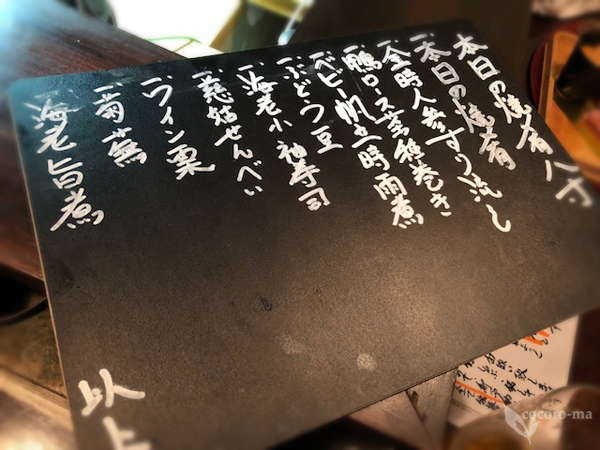 本日の焼肴八寸
一本日の焼肴
一金時人参すり流し
一鴨ロース芋種巻き
一ベビー帆立時雨煮
一ぶどう豆
一海老小袖寿司
一慈姑せんべい
一ワイン栗
一菊蕪
海老旨煮
以上
cocoro-ma